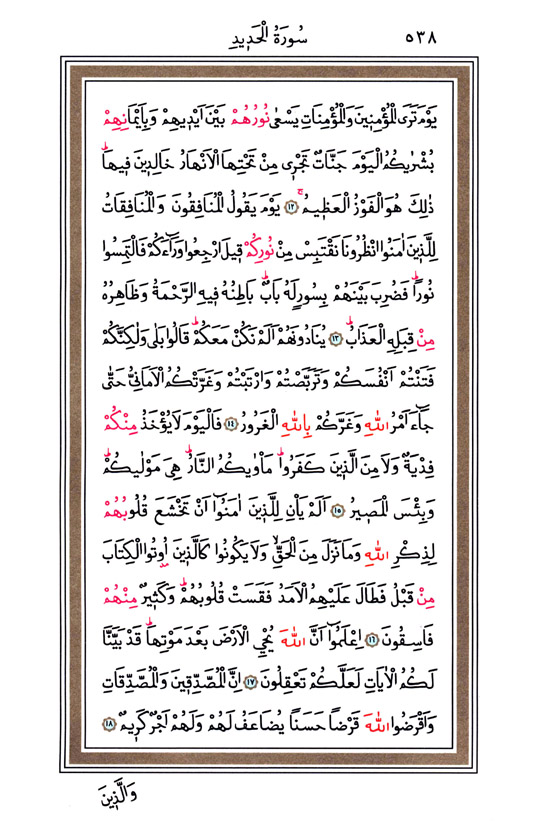 ٥٣٨ سُورَةُ الْحَدِيدِ
يَوْمَ تَرَى الْمُؤْمِنِينَ وَالْمُؤْمِنَاتِ يَسْعٰى نُورُهُمْ بَيْنَ اَيْدِيهِمْ وَبِاَيْمَانِهِمْ
بُشْرٰيكُمُ الْيَوْمَ جَنَّاتٌ تَجْرِي مِنْ تَحْتِهَا الْاَنْهَارُ خَالِدِينَ فِيهَاۜ
ذٰلِكَ هُوَ الْفَوْزُ الْعَظِيمُۚ ﴿١٢﴾ يَوْمَ يَقُولُ الْمُنَافِقُونَ وَالْمُنَافِقَاتُ
لِلَّذِينَ اٰمَنُوا انْظُرُونَا نَقْتَبِسْ مِنْ نُورِكُمْۚ قِيلَ ارْجِعُوا وَرَٓاءَكُمْ فَالْتَمِسُوا
نُوراًۜ فَضُرِبَ بَيْنَهُمْ بِسُورٍ لَهُ بَابٌۜ بَاطِنُهُ فِيهِ الرَّحْمَةُ وَظَاهِرُهُ
مِنْ قِبَلِهِ الْعَذَابُۜ ﴿١٣﴾ يُنَادُونَهُمْ اَلَمْ نَكُنْ مَعَكُمْۜ قَالُوا بَلٰى وَلٰكِنَّكُمْ
فَتَنْتُمْ اَنْفُسَكُمْ وَتَرَبَّصْتُمْ وَارْتَبْتُمْ وَغَرَّتْكُمُ الْاَمَانِيُّ حَتّٰى
جَٓاءَ اَمْرُ اللّٰهِ وَغَرَّكُمْ بِاللّٰهِ الْغَرُورُ ﴿١٤﴾ فَالْيَوْمَ لَا يُؤْخَذُ مِنْكُمْ
فِدْيَةٌ وَلَا مِنَ الَّذِينَ كَفَرُواۜ مَأْوٰيكُمُ النَّارُۜ هِيَ مَوْلٰيكُمْۜ
وَبِئْسَ الْمَصِيرُ ﴿١٥﴾ اَلَمْ يَأْنِ لِلَّذِينَ اٰمَنُٓوا اَنْ تَخْشَعَ قُلُوبُهُمْ
لِذِكْرِ اللّٰهِ وَمَا نَزَلَ مِنَ الْحَقِّۙ وَلَا يَكُونُوا كَالَّذِينَ اُو۫تُوا الْكِتَابَ
مِنْ قَبْلُ فَطَالَ عَلَيْهِمُ الْاَمَدُ فَقَسَتْ قُلُوبُهُمْۜ وَكَثِيرٌ مِنْهُمْ
فَاسِقُونَ ﴿١٦﴾ اِعْلَمُٓوا اَنَّ اللّٰهَ يُحْيِ الْاَرْضَ بَعْدَ مَوْتِهَاۜ قَدْ بَيَّنَّا
لَكُمُ الْاٰيَاتِ لَعَلَّكُمْ تَعْقِلُونَ ﴿١٧﴾ اِنَّ الْمُصَّدِّقِينَ وَالْمُصَّدِّقَاتِ
وَاَقْرَضُوا اللّٰهَ قَرْضاً حَسَناً يُضَاعَفُ لَهُمْ وَلَهُمْ اَجْرٌ كَرِيمٌ ﴿١٨﴾
وَالَّذِينَ